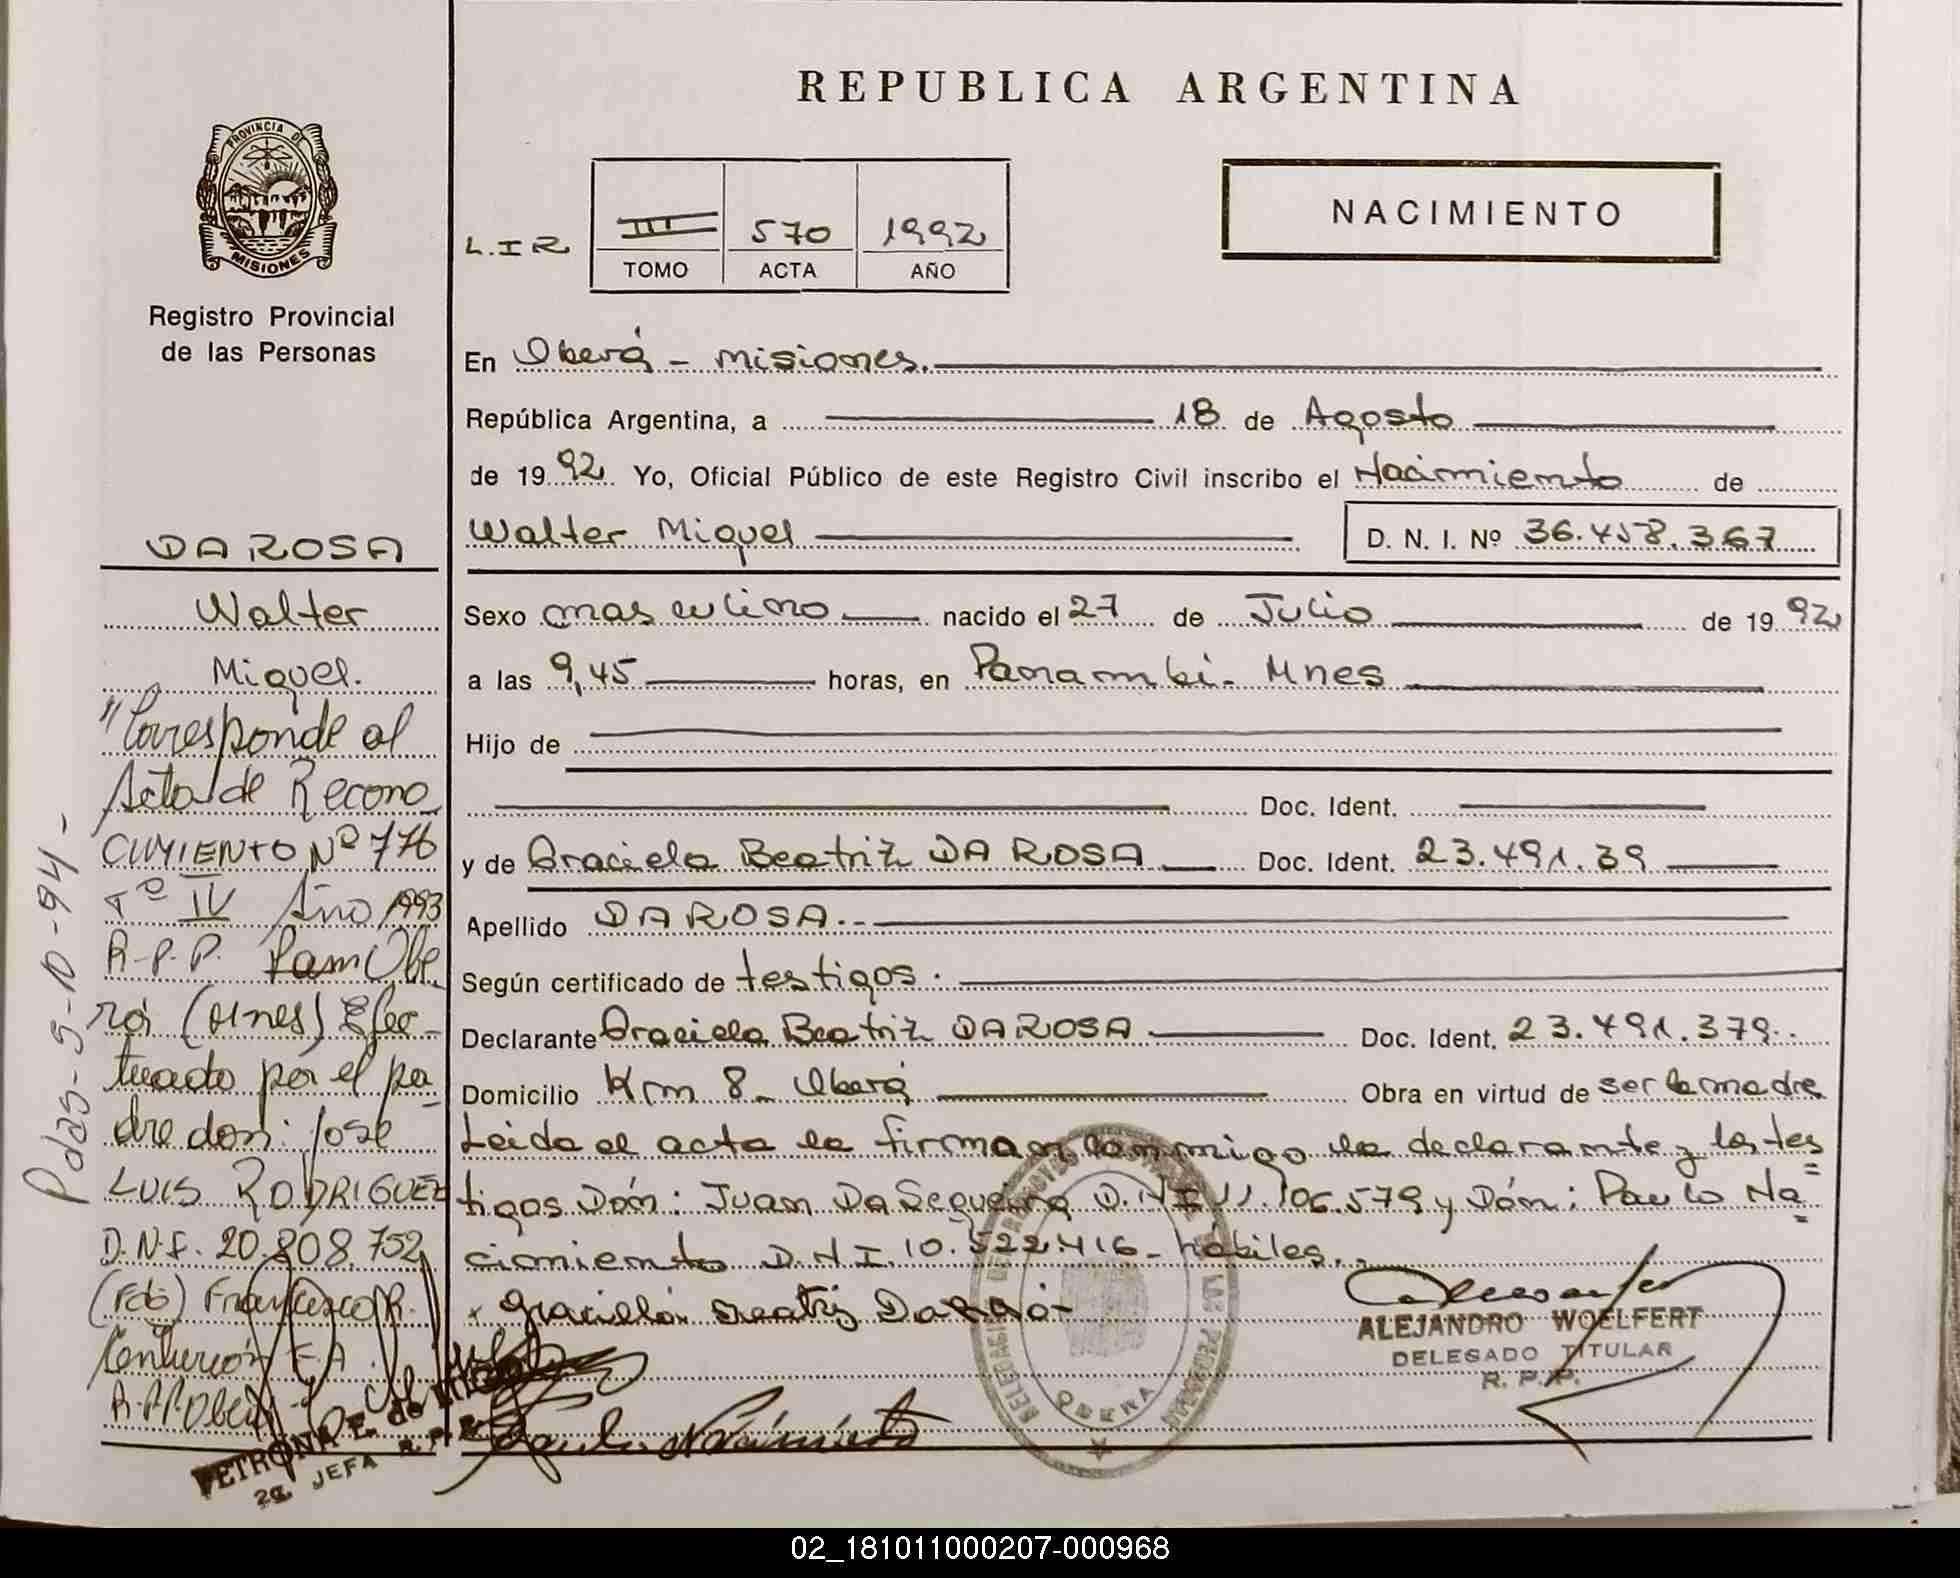 REPUBLICA ARGENTINA
PROVINCIA DE
MISIONES
Registro Provincial
de las Personas
L.I R
III 570 1992
TOMO ACTA AÑO
NACIMIENTO
En Oberá - Misiones.
República Argentina, a 18 de Agosto
de 1992 Yo, Oficial Público de este Registro Civil inscribo el Nacimiento de
Walter Miguel D. N. I. Nº 36.458.367
Sexo masculino nacido el 27 de Julio de 1992
a las 9,45 horas, en Panambi - Mnes
Hijo de
Doc. Ident.
y de Graciela Beatriz DA ROSA Doc. Ident. 23.491.39
Apellido DA ROSA.
Según certificado de testigos.
Declarante Graciela Beatriz DA ROSA Doc. Ident. 23.491.379
Domicilio Km 8 - Oberá Obra en virtud de ser la madre
Leida el acta la firman conmigo la declarante y los tes
tigos Dón: Juan Da Sequeira D.N.I 11.106.579 y Dón: Paulo Na
cimiento D.N.I. 10.522.416 - hábiles.
ALEJANDRO WOELFERT
DELEGADO TITULAR
R. P. P.
Paulo Nacimiento
OBERA
DA ROSA
Walter
Miguel.
"Corresponde al
Acta de Recono
CIMIENTO Nº 776
Tº IV Año 1993
R.P.P. Obe
rá (Mnes) Efec-
tuado por el pa
dre don: José
LUIS RODRIGUEZ
D.N.I. 20.808.752
(Fdo) Francisco R.
Centurión
Pdas-5-10-94-
PETRONA
2a. JEFA R.P.P.
02_181011000207-000968